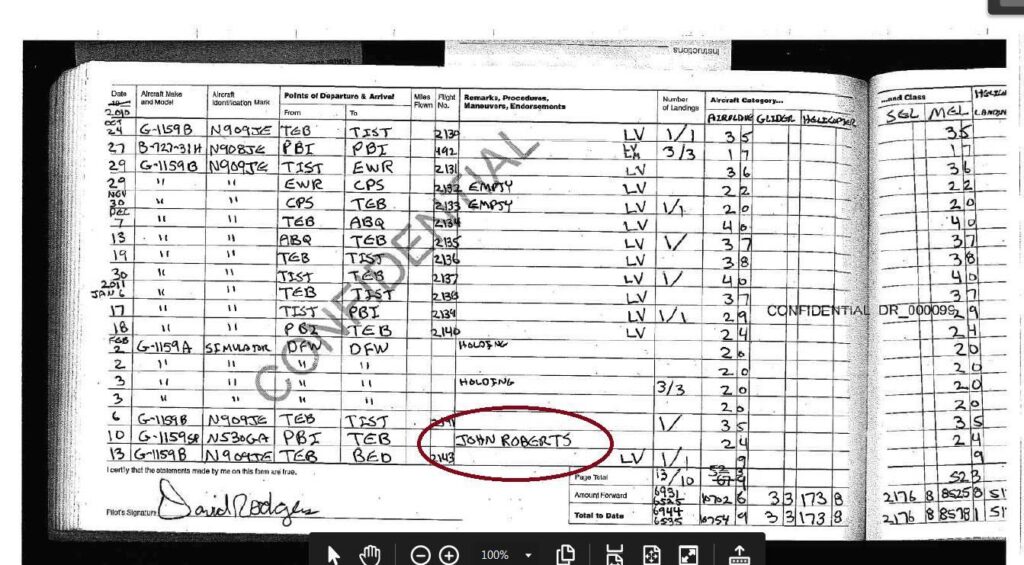 Instructions
Date 19 Aircraft Make and Model Aircraft Identification Mark Points of Departure & Arrival From To Miles Flown Flight No. Remarks, Procedures, Maneuvers, Endorsements Number of Landings Aircraft Category... ...and Class
2010 AIRPLANE GLIDER HELICOPTER SEL MEL
OCT
24 G-1159B N909JE TEB TIST 2130 LV 1/1 3 5 3 5
27 B-727-31H N908JE PBI PBI 492 LV LM 3/3 1 7 1 7
29 G-1159B N909JE TIST EWR 2131 LV 3 6 3 6
29 " " EWR CPS 2132 EMPTY LV 2 2 2 2
NOV
30 " " CPS TEB 2133 EMPTY LV 1/1 2 0 2 0
DEC
7 " " TEB ABQ 2134 LV 4 0 4 0
13 " " ABQ TEB 2135 LV 1/ 3 7 3 7
19 " " TEB TIST 2136 LV 3 8 3 8
30 " " TIST TEB 2137 LV 1/ 4 0 4 0
2011
JAN 6 " " TEB TIST 2138 LV 3 7 3 7
17 " " TIST PBI 2139 LV 1/1 2 9 2 9
CONFIDENTIAL DR_000099
18 " " PBI TEB 2140 LV 2 4 2 4
FEB
2 G-1159A SIMULATOR DFW DFW HOLDING 2 0 2 0
2 " " " " 2 0 2 0
3 " " " " HOLDING 3/3 2 0 2 0
3 " " " " 2 0 2 0
6 G-1159B N909JE TEB TIST 1/ 3 5 3 5
10 G-1159SP N530GA PBI TEB JOHN ROBERTS 2 4 2 4
13 G-1159B N909JE TEB BED 2143 LV 1/1 9 9
CONFIDENTIAL
I certify that the statements made by me on this form are true.
Page Total 13/10 52 3
Amount Forward 6931 6525 10702 6 3 3 173 8 2176 8 8525 8
Pilot's Signature David Rodgers
Total to Date 6944 6535 10754 9 3 3 173 8 2176 8 8578 1
100%